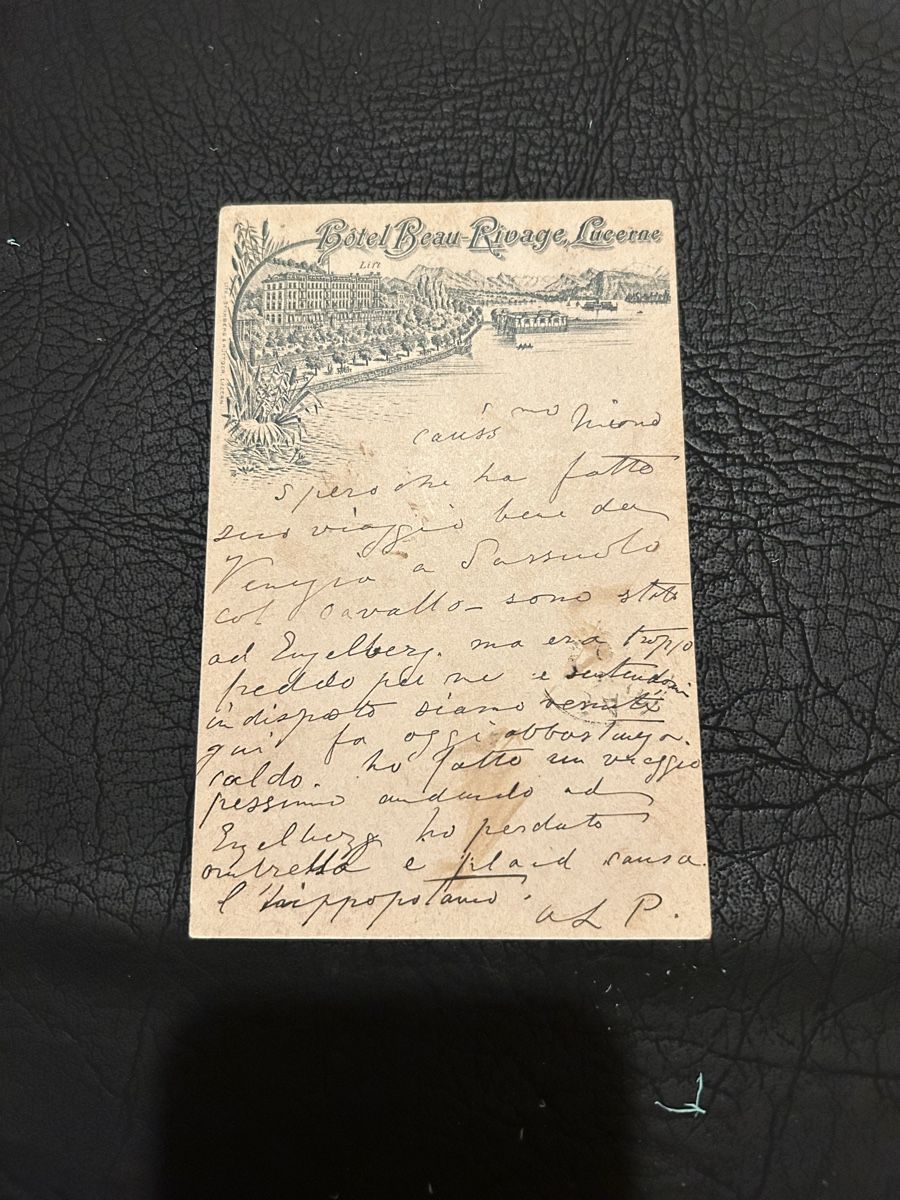 Hôtel Beau-Rivage, Lucerne
Lift
cariss mo
Spero che ha fatto
suo viaggio bene da
Venezia a Sassuolo
col cavallo – sono stata
ad Engelberg. ma era troppo
freddo per me e sentendomi
indisposto siamo venuti
qui fa oggi abbastanza
caldo. ho fatto un viaggio
pessimo andando ad
Engelberg ho perduto
ombrella e plaid causa
l'hippopotamo.
P.